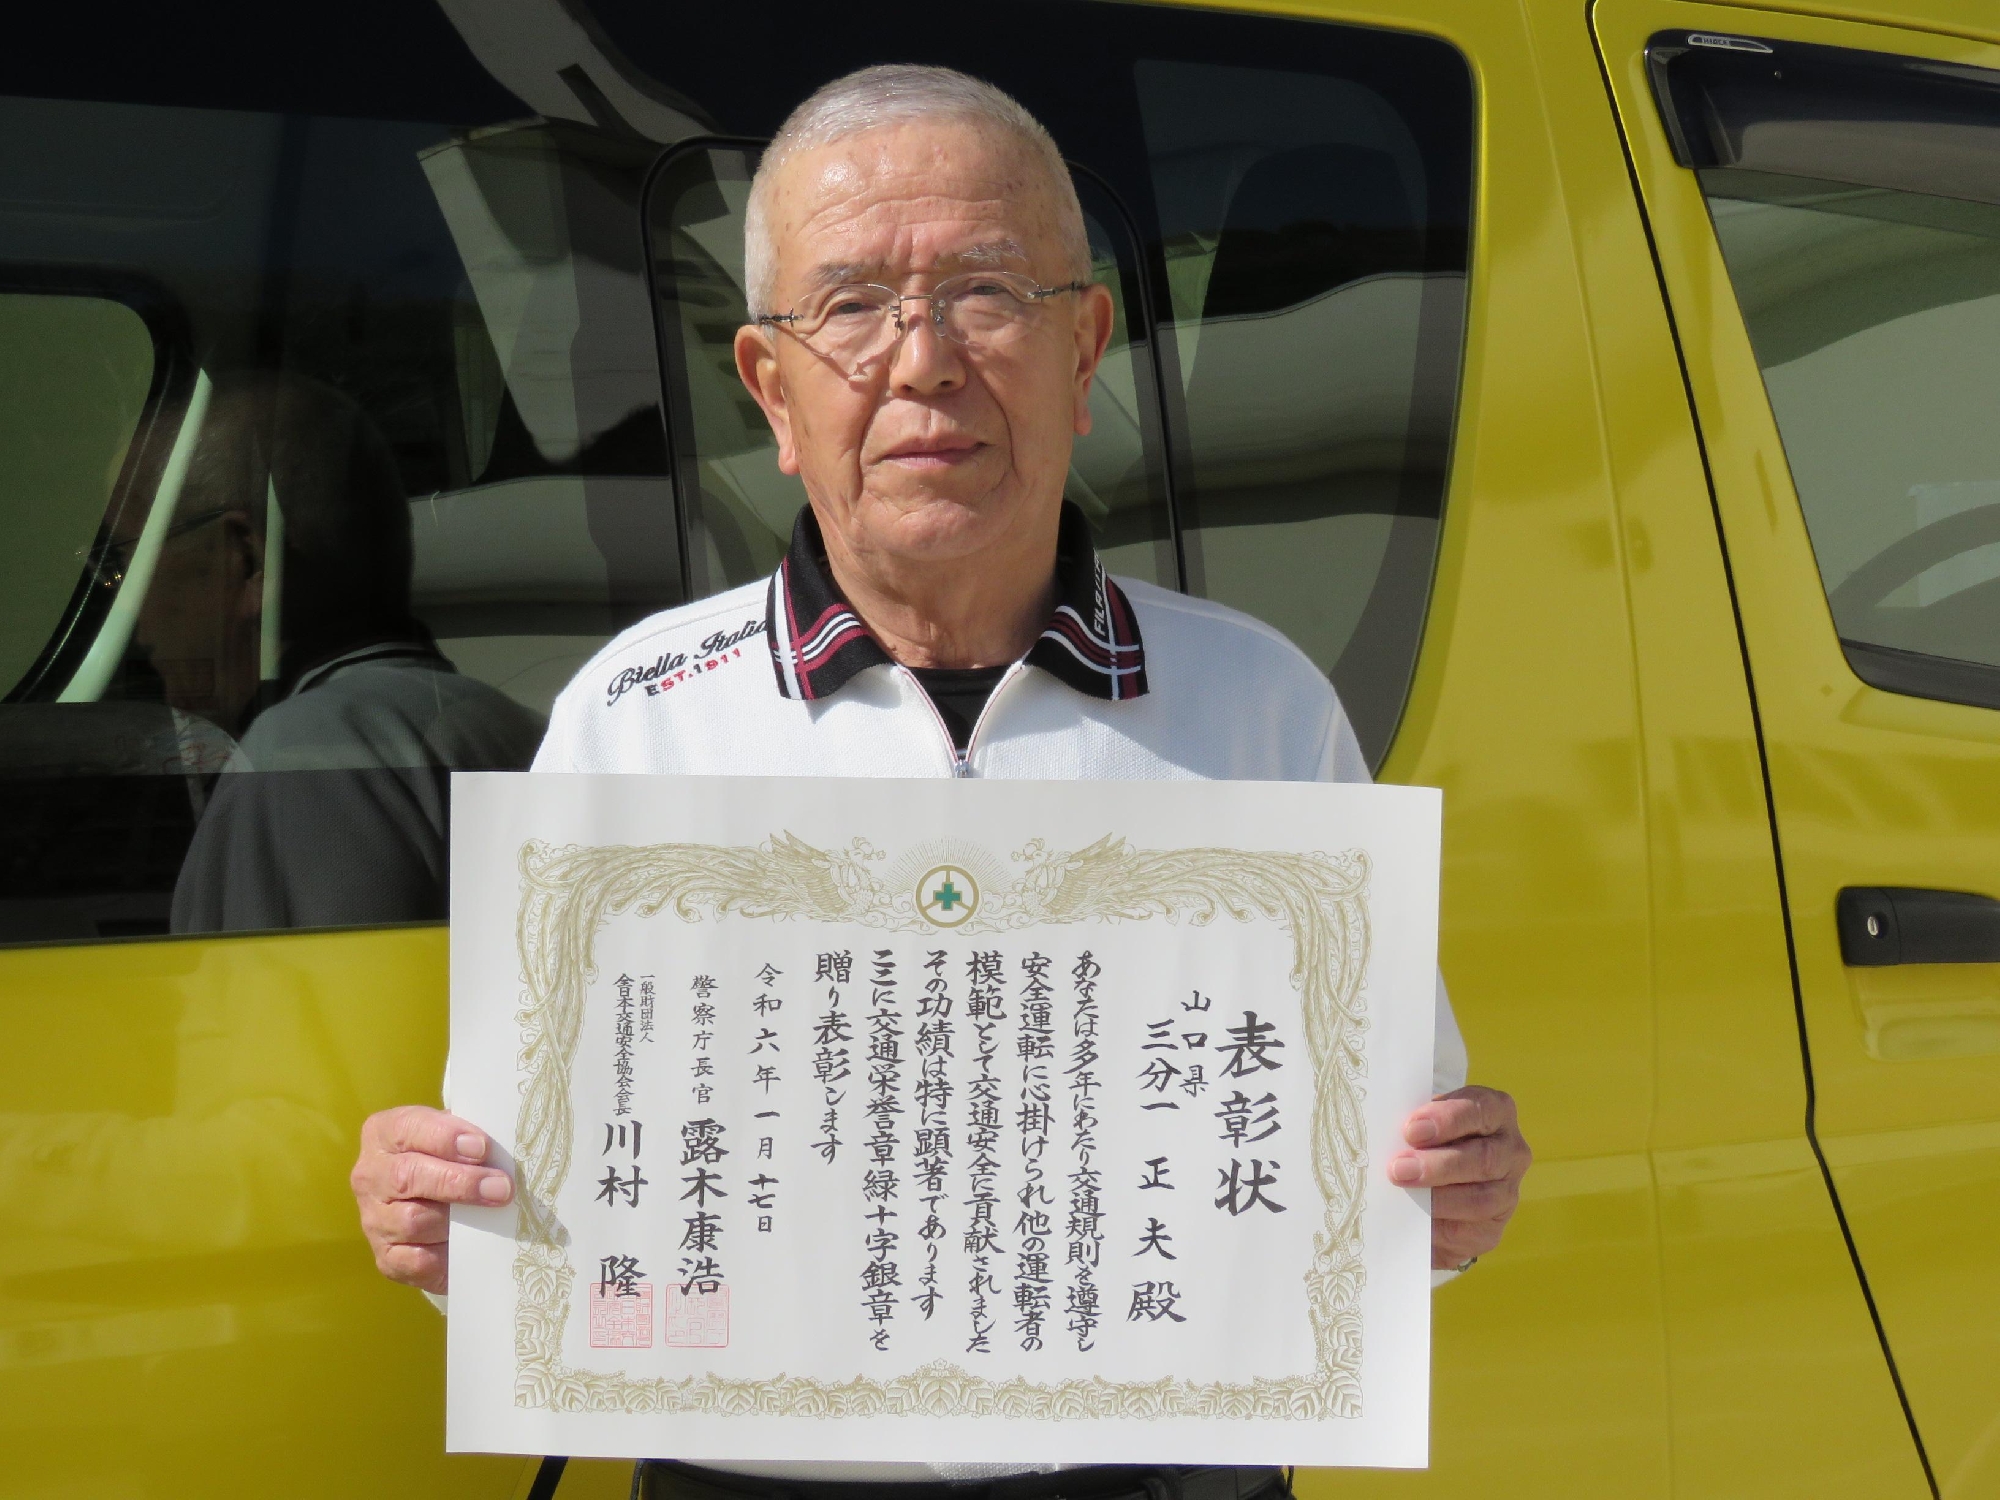 Biella Italia
EST.1911
表彰状
山口県
三分一正夫殿
あなたは多年にわたり交通規則を遵守し
安全運転に心掛けられ他の運転者の
模範として交通安全に貢献されました
その功績は特に顕著であります
ここに交通栄誉章緑十字銀章を
贈り表彰します
令和六年一月十七日
警察庁長官 露木康浩
一般財団法人
全日本交通安全協会会長 川村 隆